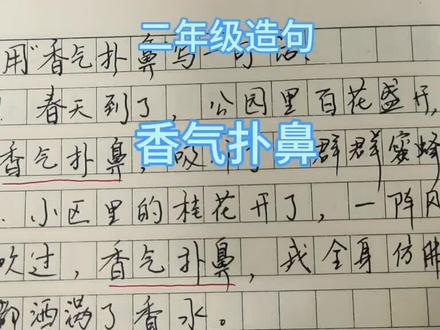 二年级造句
用"香气扑鼻写一句话.
春天到了，公园里百花盛开，
香气扑鼻
香气扑鼻，吸 群群蜜蜂
.小区里的桂花开了，一阵风
吹过，香气扑鼻，我全身仿佛
都洒满了香水。